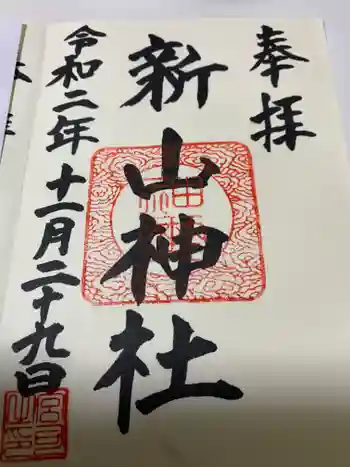 奉拝
新山神社
令和二年十一月二十九日